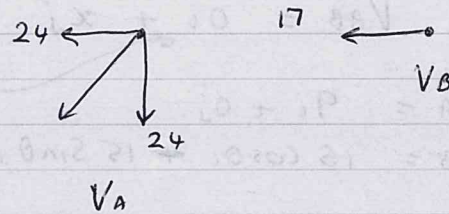 24 17
V_B
24
V_A